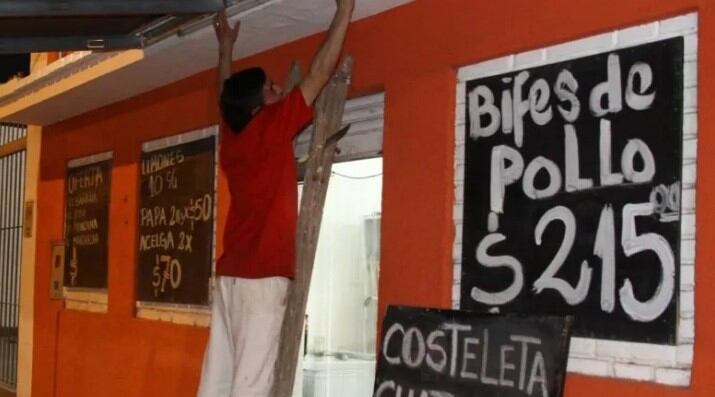 OFERTA
LIMONES
10 %
PAPA 2KG X $50
ACELGA 2X
$70
Bifes de
Pollo
$215.00
COSTELETA